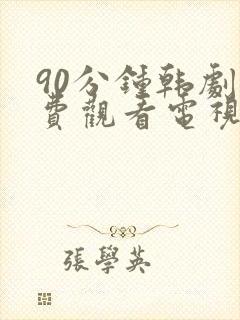 90分鐘韩劇
費觀看電視
張學英